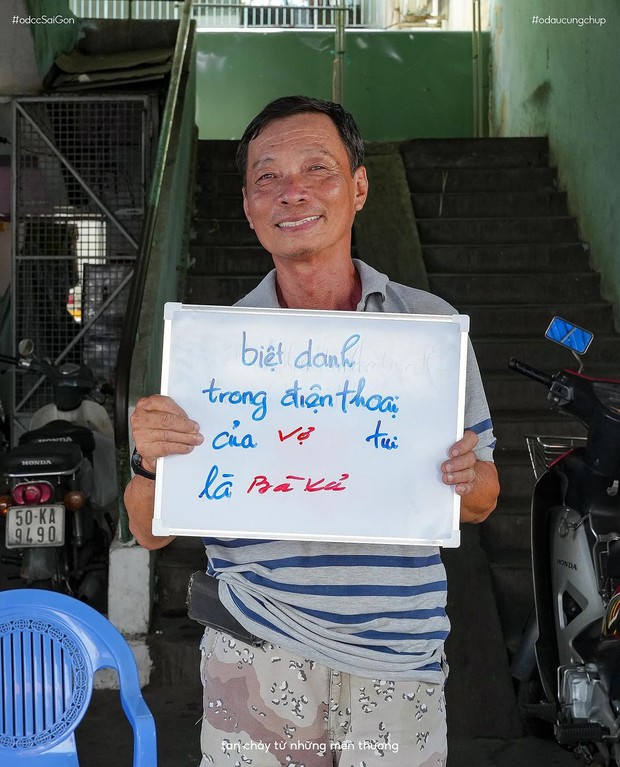 #odccSaiGon
#odaucungchup
biệt danh
trong điện thoại
của vợ tui
là Bà Xử
HONDA
50-KA
9490
HONDA
tan chảy từ những mến thương